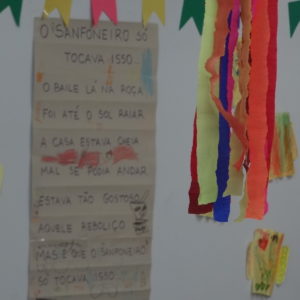 O SANFONEIRO SÓ
TOCAVA ISSO...
O BAILE LÁ NA ROÇA
FOI ATÉ O SOL RAIAR
A CASA ESTAVA CHEIA
MAL SE PODIA ANDAR
ESTAVA TÃO GOSTOSO
AQUELE REBOLIÇO
MAS É QUE O SANFONEIRO
SÓ TOCAVA ISSO...